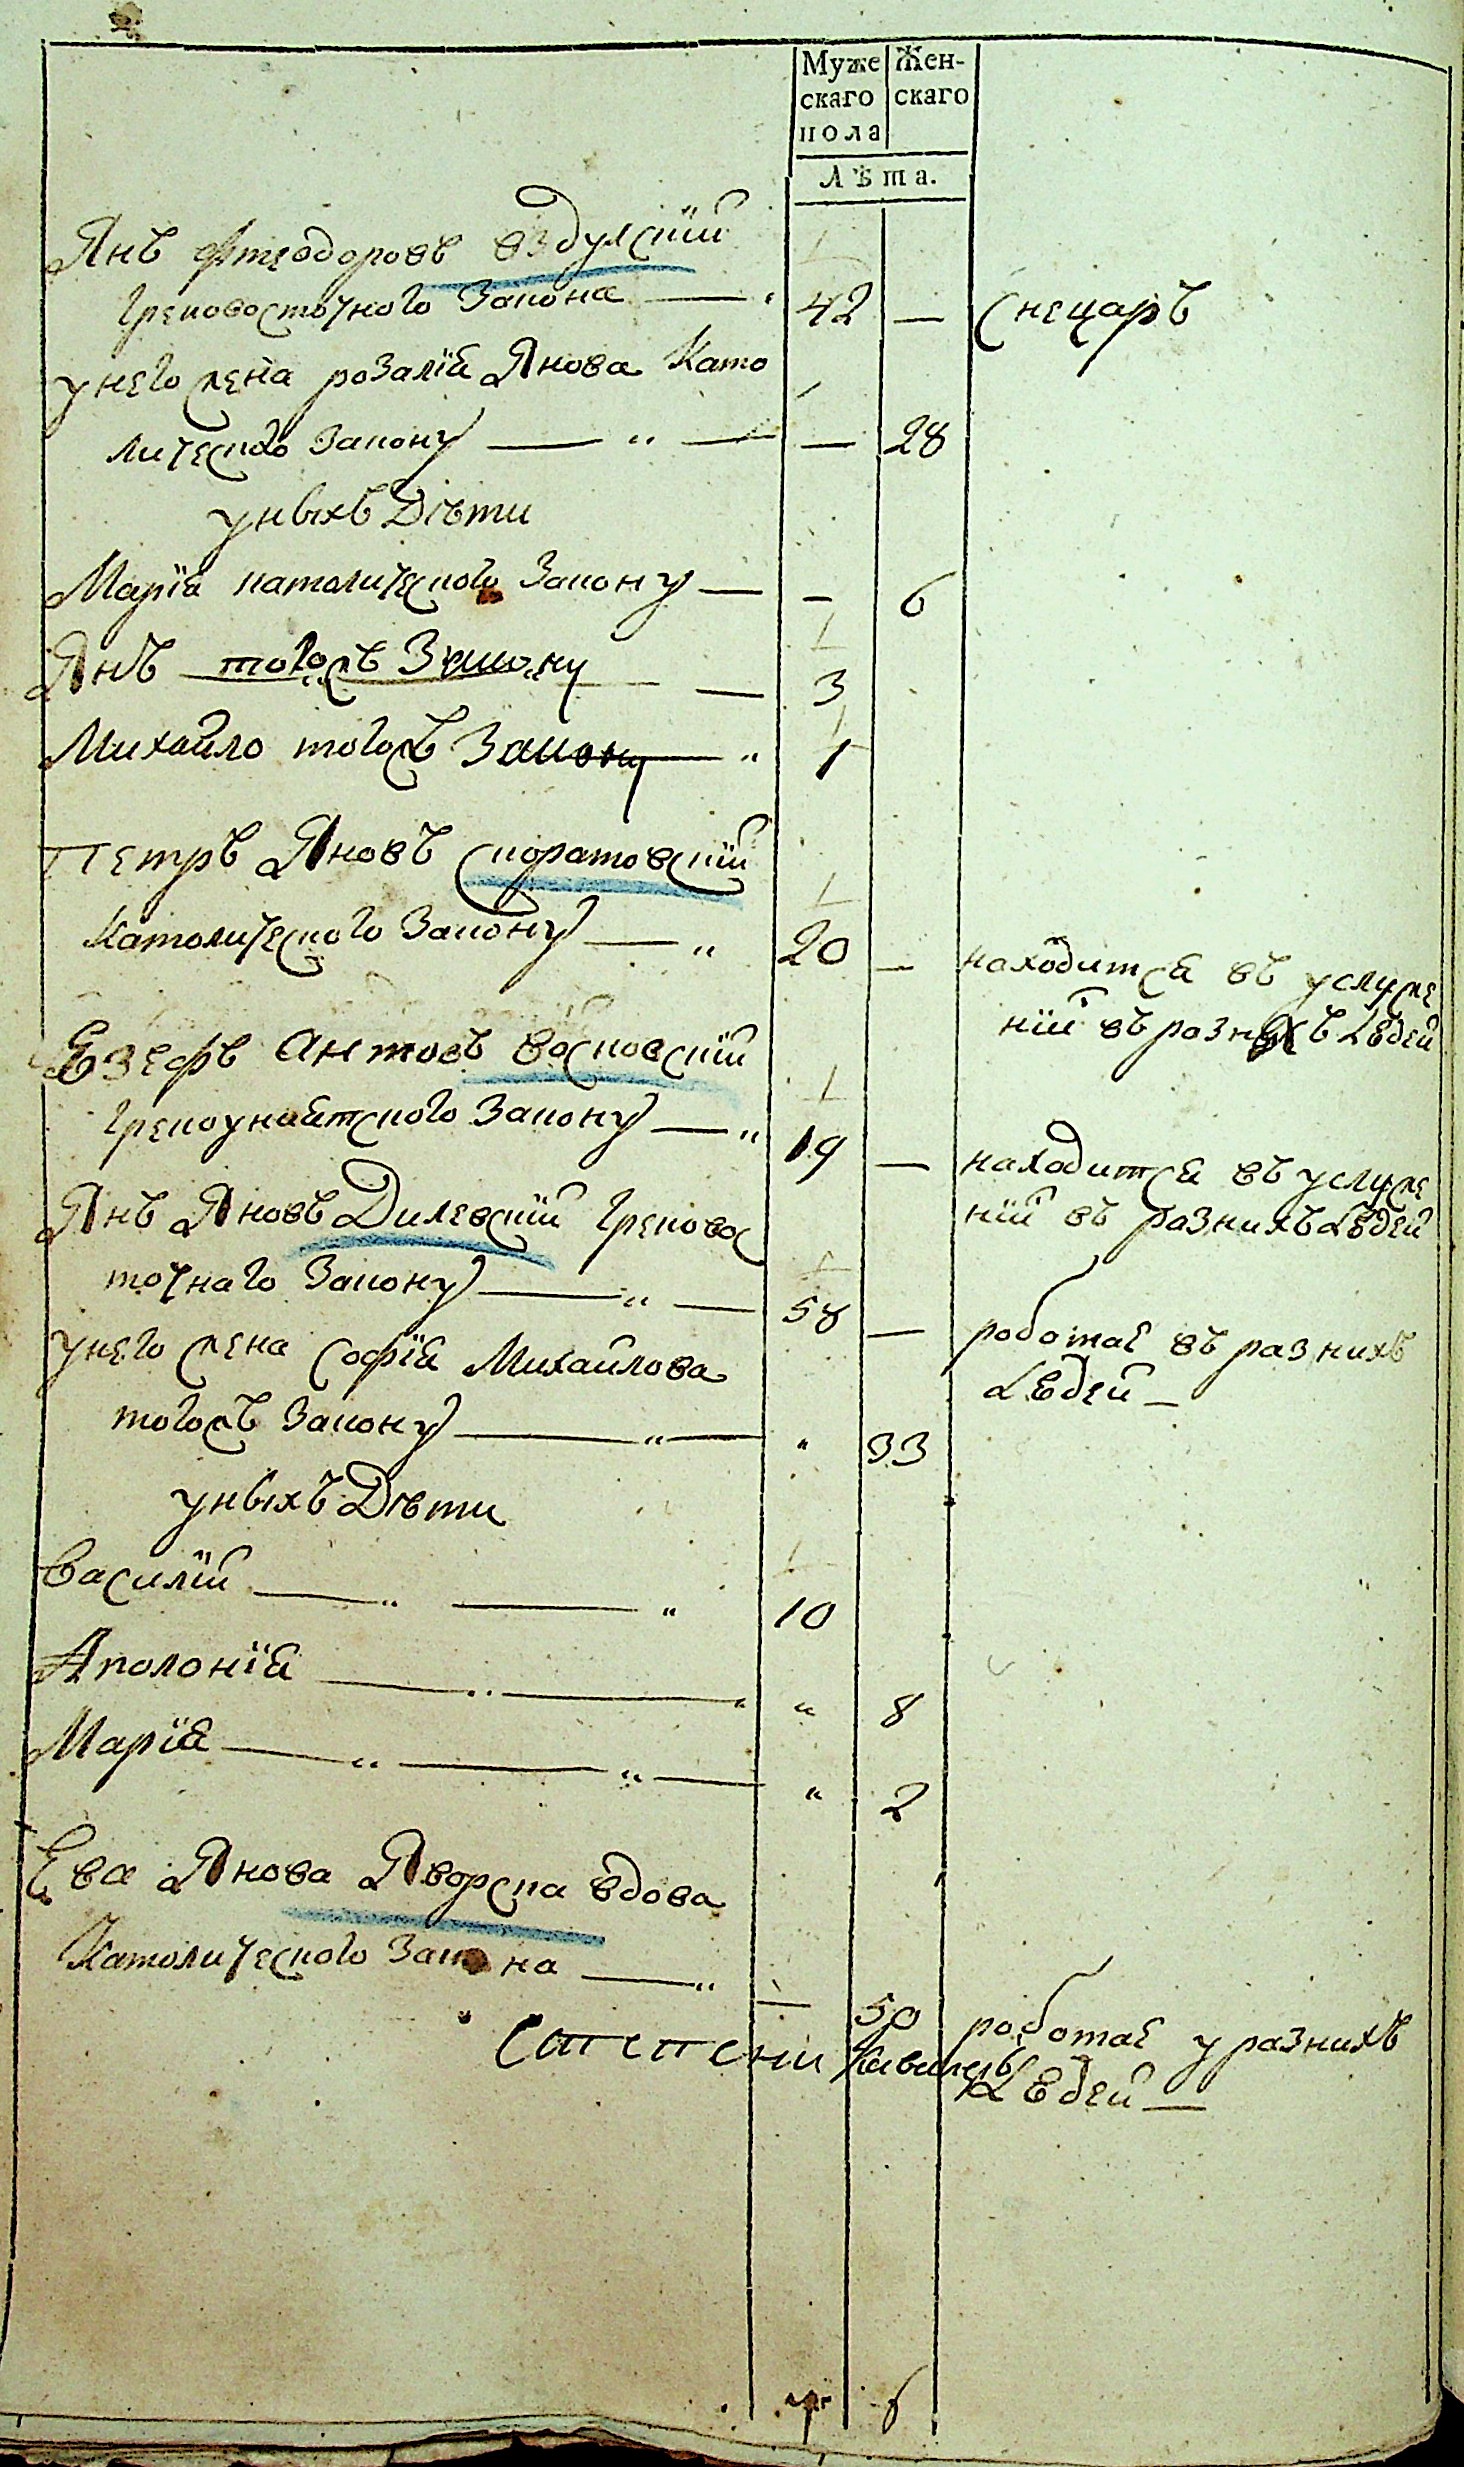 Муже
скаго
пола
Жен-
скаго
Лѣта.
Янъ Фтеодоровъ вздулскїй
Грековосточного Закона — 42 — снецаръ
унего жена розалїя Янова Като
лическо Закону — " — — 28
уныхъ Дѣти
Марїя католического Закону — — 6
Янъ тогожъ Закону — 3
Михайло тогожъ Закону — " 1
Петръ Яновъ скоратовскїй
Католического Закону — " 20 — находитса въ услуже
нїи въ разныхъ Людей
Езефъ Антовъ восковскїй
Грекоунаитского Закону — " 19 — находитса въ услуже
нїи въ разнихъ Людей
Янъ Яновъ Дилевскїй Грековос
точнаго Закону — " — 58 — роботае въ разнихъ
Людей —
унего жена софїя Михайлова
тогожъ Закону — " — " 33
уныхъ Дѣти
Василїй — " — " 10
Аполонїя — " — " " 8
Марїя — " — " — " 2
Ева Янова Яворска вдова
Католического Закона — " — 50 роботае у разнихъ
Людей —
7 6